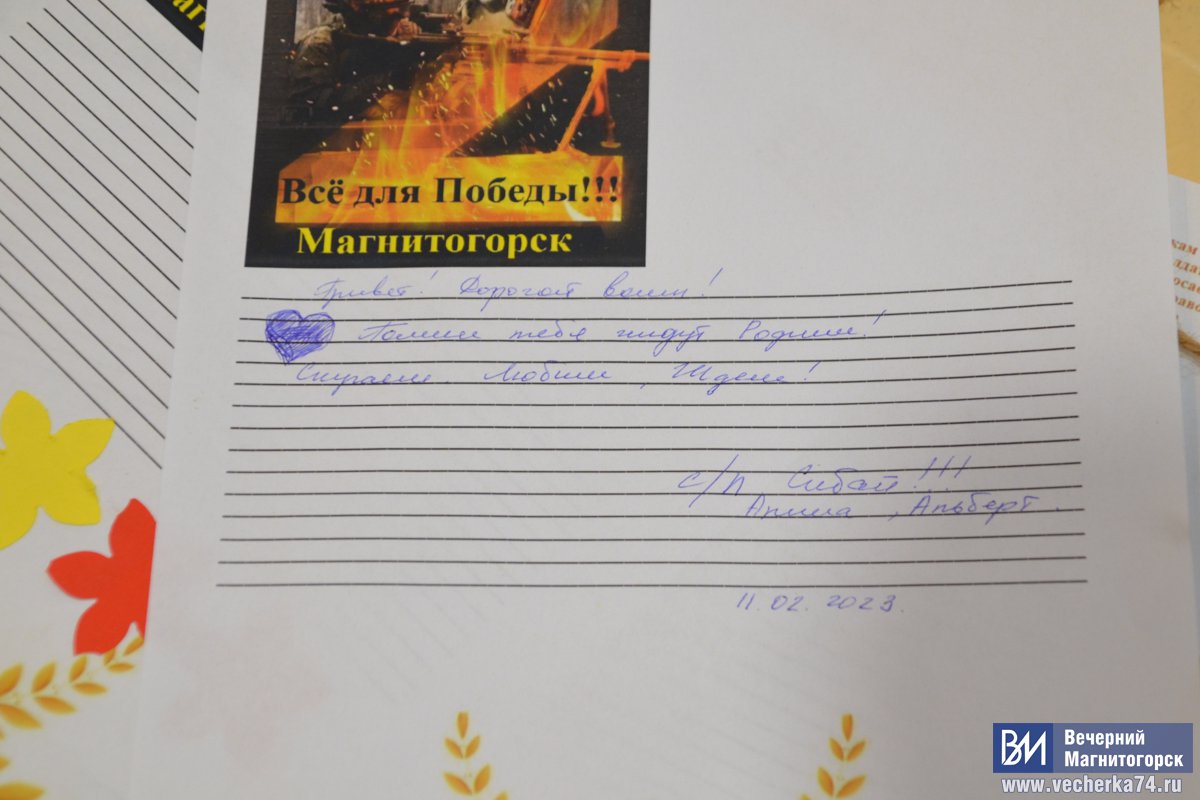 Всё для Победы!!!
Магнитогорск
Привет! Дорогой воин!
Помни тебя ждут Родные!
Скучаем. Любим, Ждем!
с/п Сибай!!!
Альберт.
11.02.2023.
ВМ Вечерний
Магнитогорск
www.vecherka74.ru